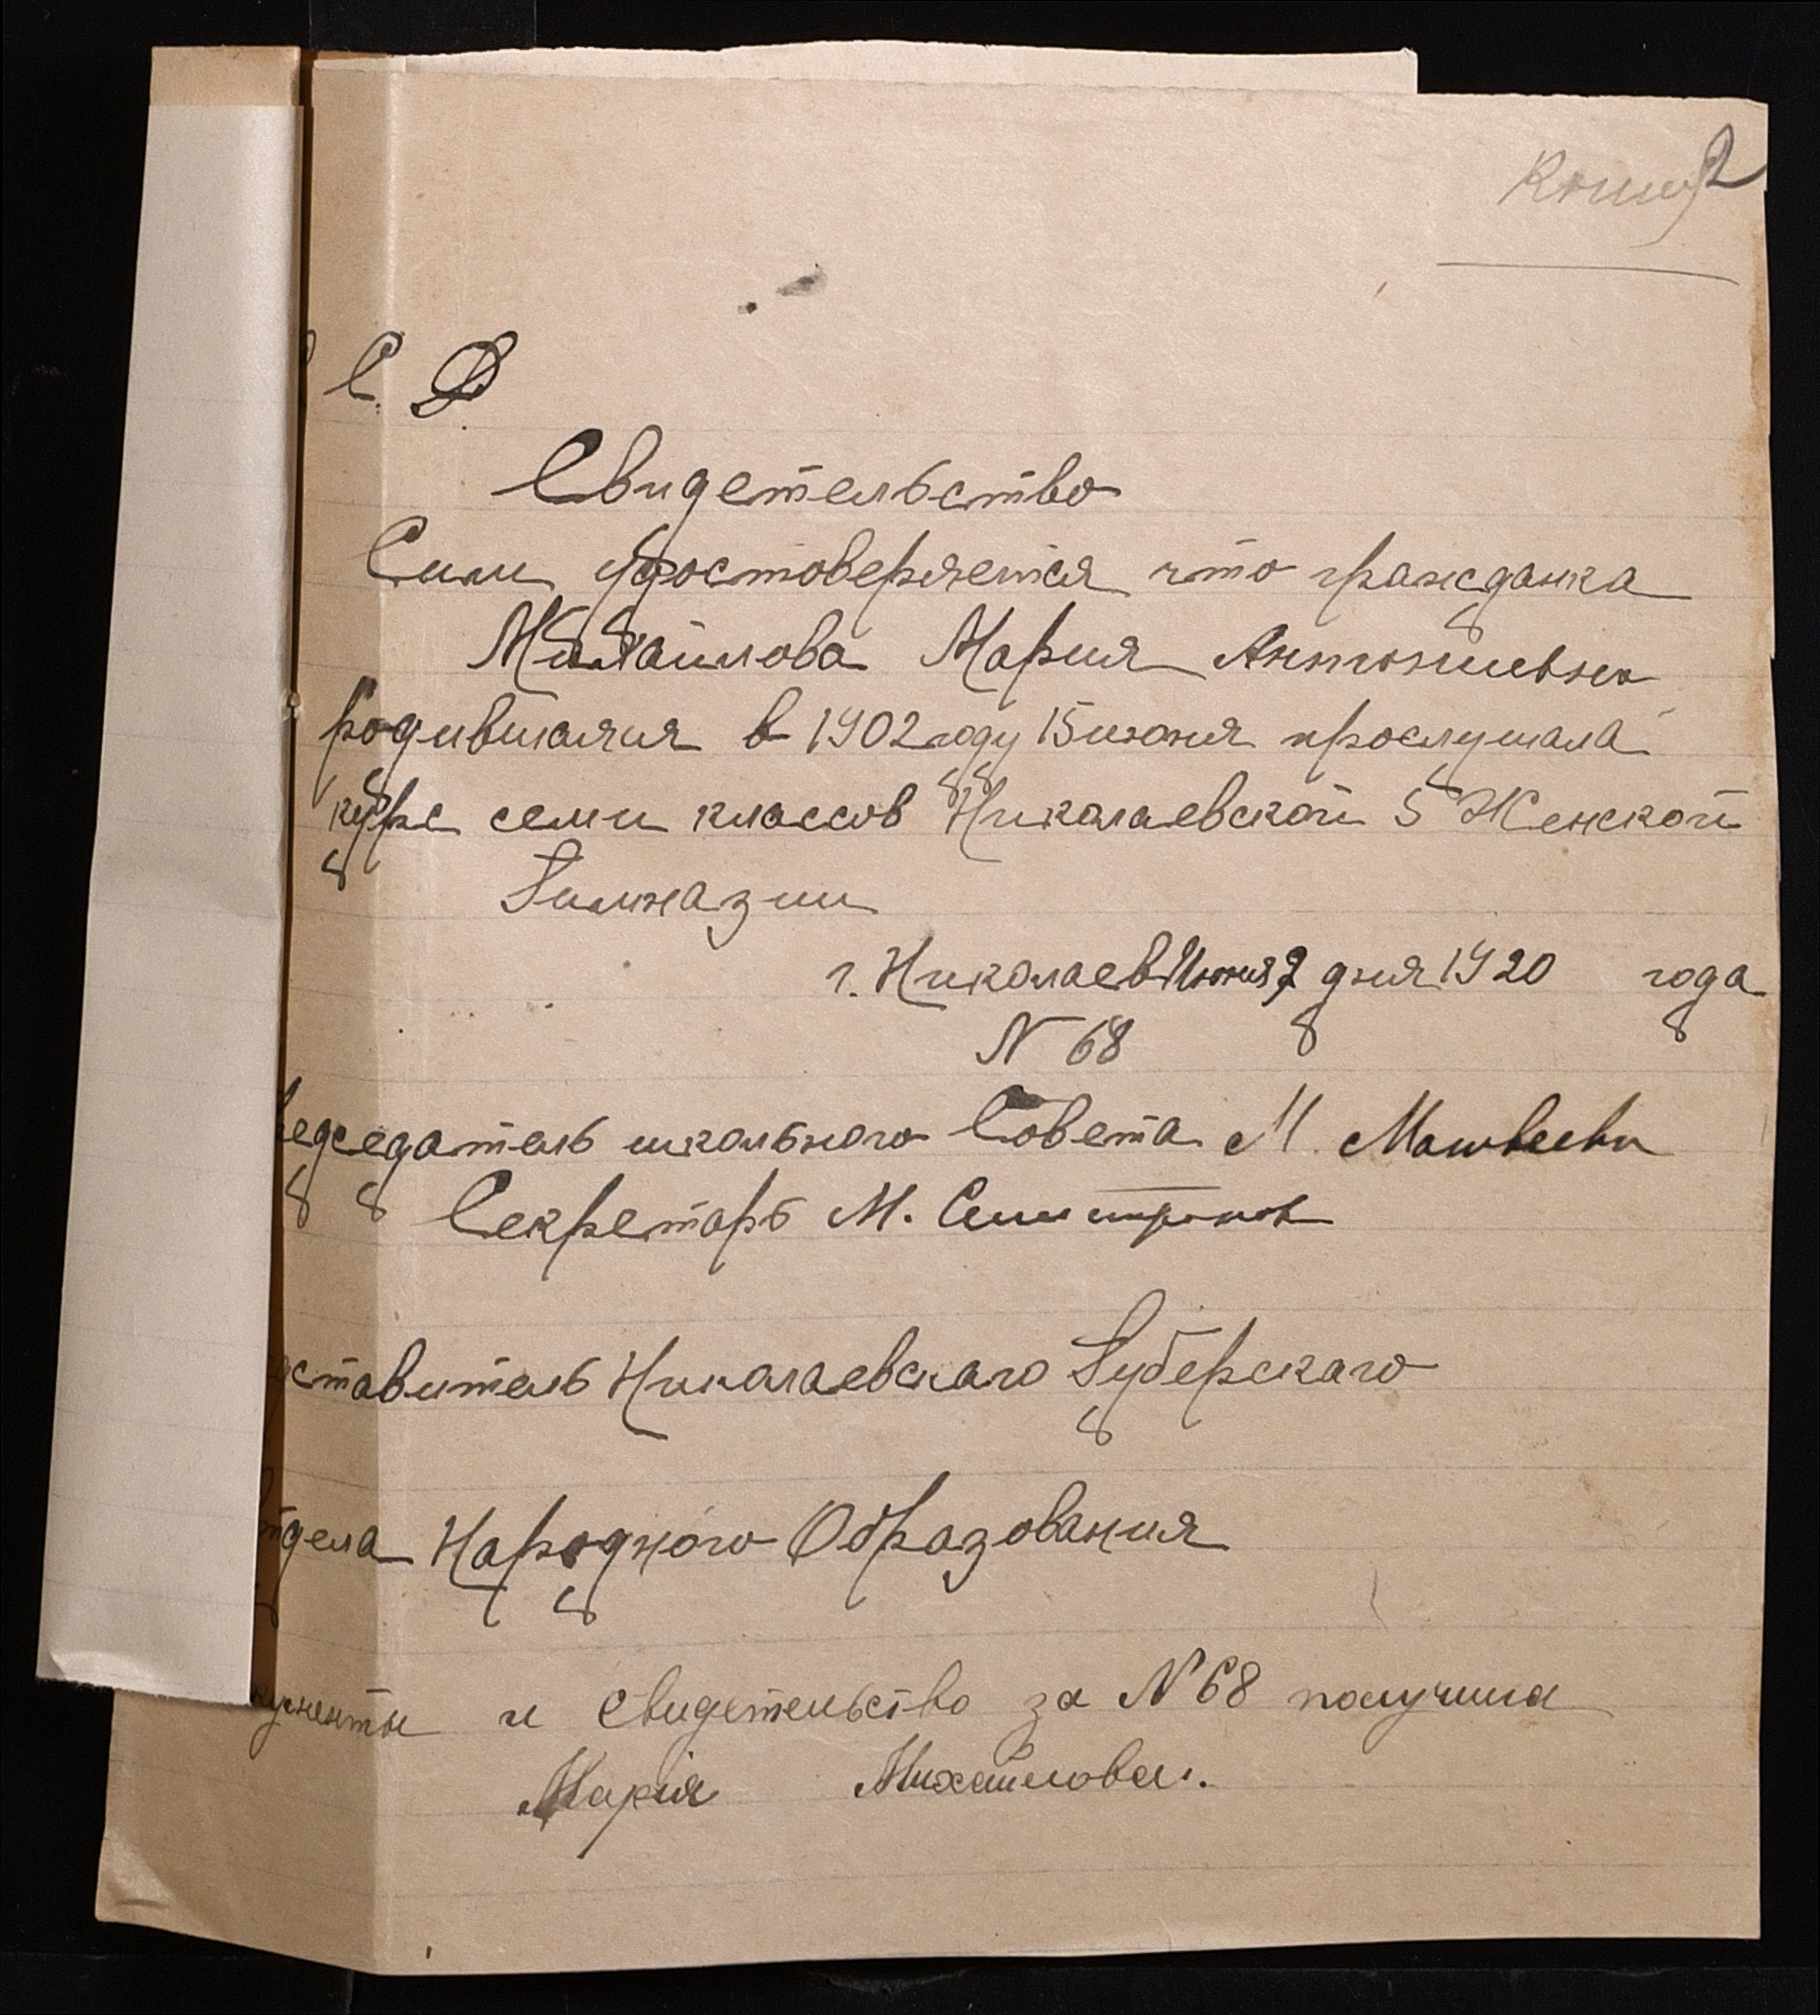 Копия 2
С. Ф.
Свидетельство
Сим удостоверяется что гражданка
Михайлова Мария Антониевна
родившаяся в 1902 году 15 июня прослушала
курс семи классов Николаевской 5 Женской
Гимназии
г. Николаев Июня 2 дня 1920 года
N 68
едседатель школьного Совета М. Матвеева
Секретарь М.
ставитель Николаевскаго Губерскаго
тдела Народного Образования
ументы и свидетельство за N 68 получила
Марія Михайлова.